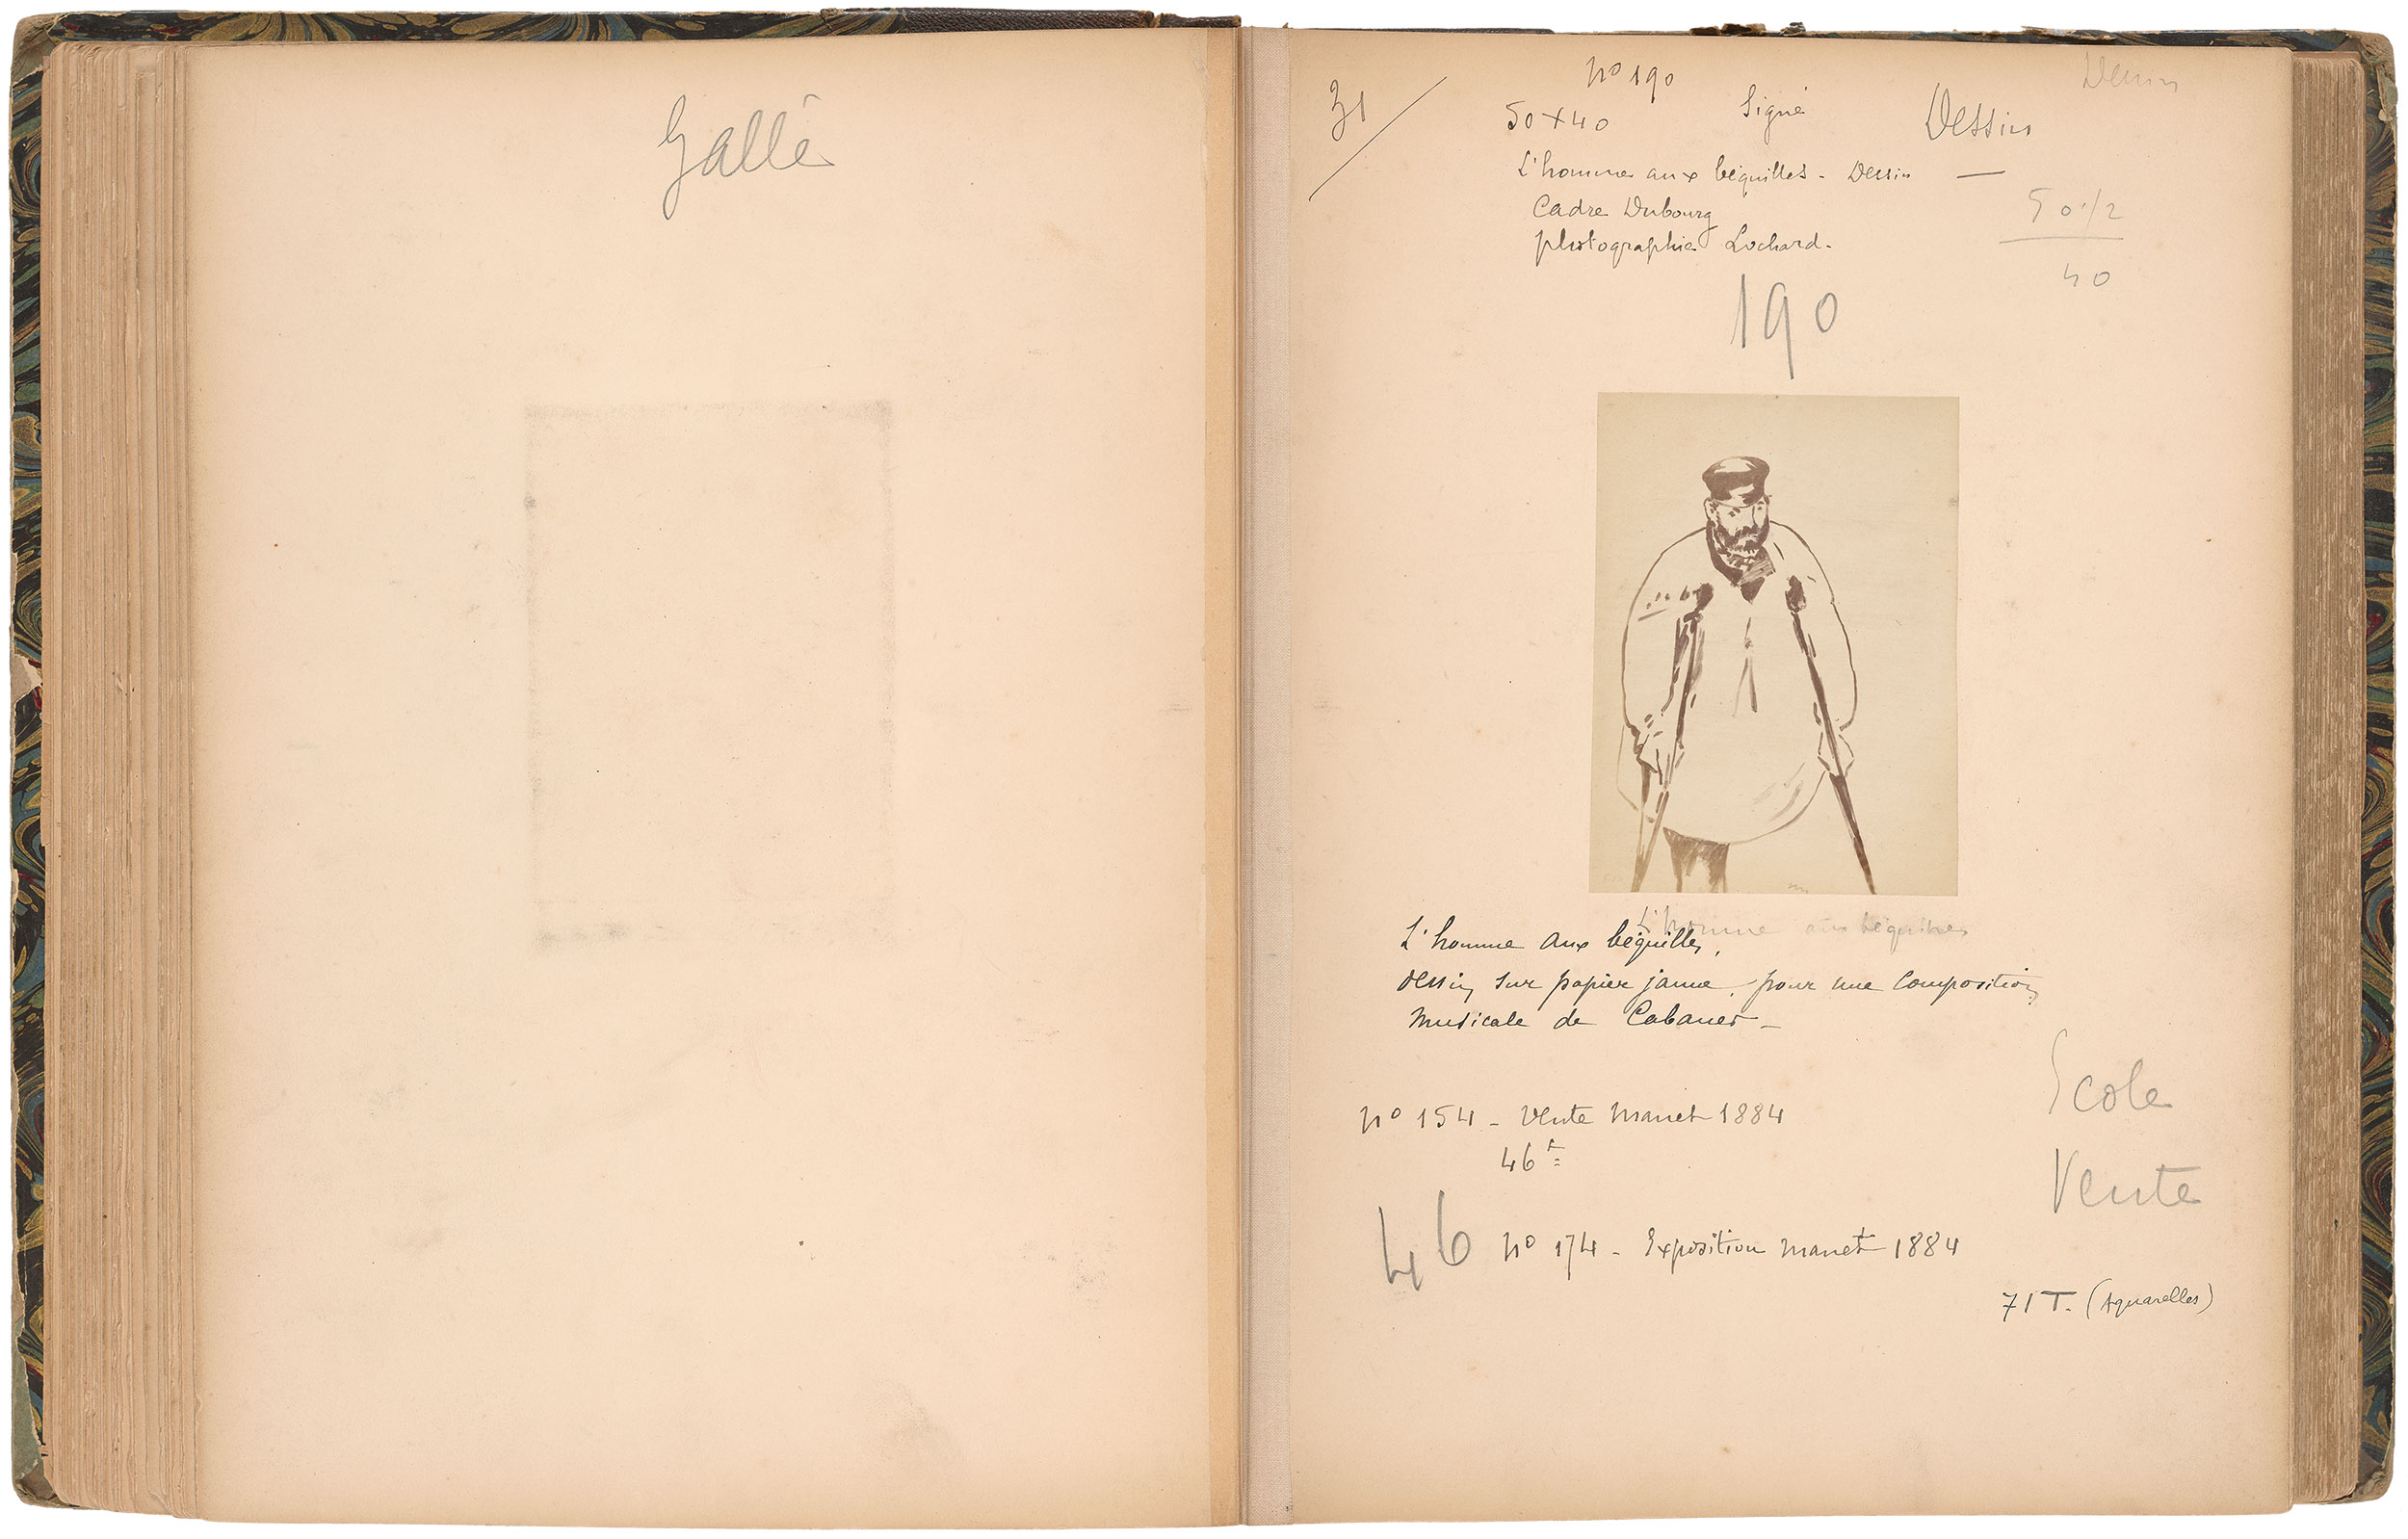 Gallé
31
nº 190
Dessin
50 x 40
Signé
Dessin
L'homme aux béquilles - Dessin —
Cadre Dubourg
photographie Lochard.
50 1/2
40
190
L'homme aux béquilles
L'homme aux béquilles,
dessin sur papier jaune, pour une composition
musicale de Cabaner -
nº 154 - Vente Manet 1884
46 f
Ecole
Vente
46
nº 174 - Exposition Manet 1884
71 T. (Aquarelles)